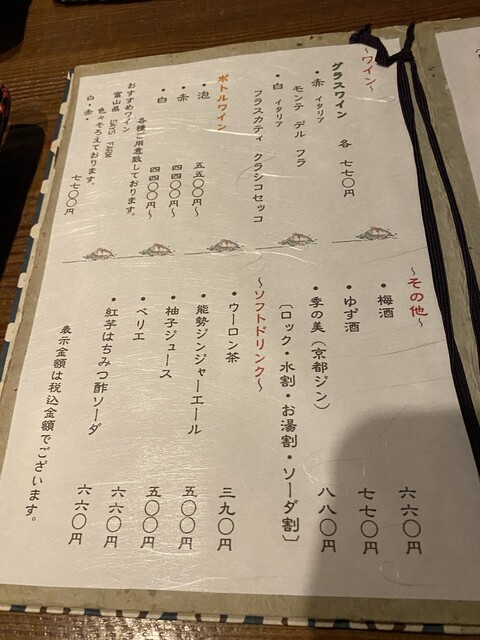 〜ワイン〜
グラスワイン 各 七七〇円
・赤 イタリア
モンテ デル フラ
・白 イタリア
フラスカティ クラシコセッコ
ボトルワイン
・泡 五五〇〇円〜
・赤 四四〇〇円〜
・白 四四〇〇円〜
各種ご用意致しております。
おすすめワイン
富山県 SAYS FARM
色々そろえております。
白・赤・ 七七〇〇円
〜その他〜
・梅酒 六六〇円
・ゆず酒 七七〇円
・季の美(京都ジン) 八八〇円
〔ロック・水割・お湯割・ソーダ割〕
〜ソフトドリンク〜
・ウーロン茶 三九〇円
・能勢ジンジャーエール 五〇〇円
・柚子ジュース 五〇〇円
・ペリエ 六六〇円
・紅芋はちみつ酢ソーダ 六六〇円
表示金額は税込金額でございます。